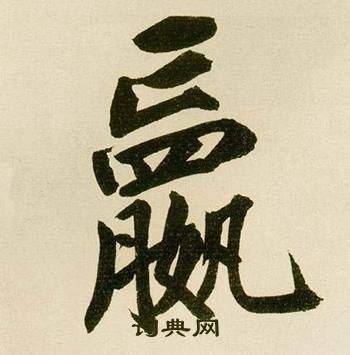 嬴
词典网